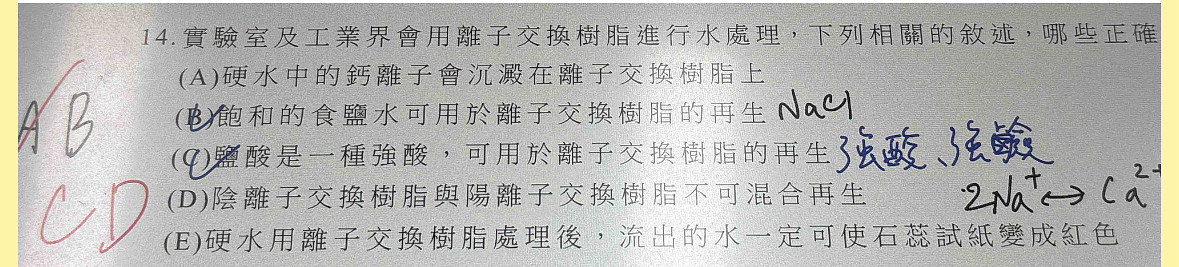 14.實驗室及工業界會用離子交換樹脂進行水處理，下列相關的敘述，哪些正確
(A)硬水中的鈣離子會沉澱在離子交換樹脂上
(B)飽和的食鹽水可用於離子交換樹脂的再生 NaCl
(C)鹽酸是一種強酸，可用於離子交換樹脂的再生 強酸、強鹼
(D)陰離子交換樹脂與陽離子交換樹脂不可混合再生
2Na⁺↔Ca²⁺
(E)硬水用離子交換樹脂處理後，流出的水一定可使石蕊試紙變成紅色
AB
CD